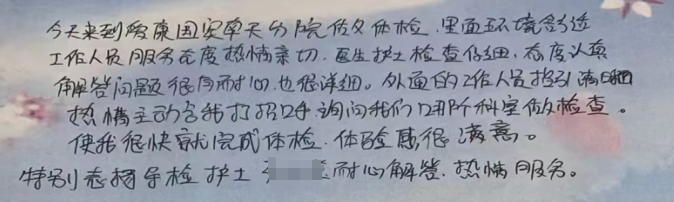 今天来到院康国宾奉天分院做体检,里面环境舒适
工作人员服务态度热情亲切,医生护士检查仔细,态度认真
解答问题很有耐心,也很详细。外面的工作人员指引清晰
热情主动给我打招呼,询问我们哪个科室做检查。
使我很快就完成体检,体验感很满意。
特别表扬导检护士 耐心解答,热情服务。